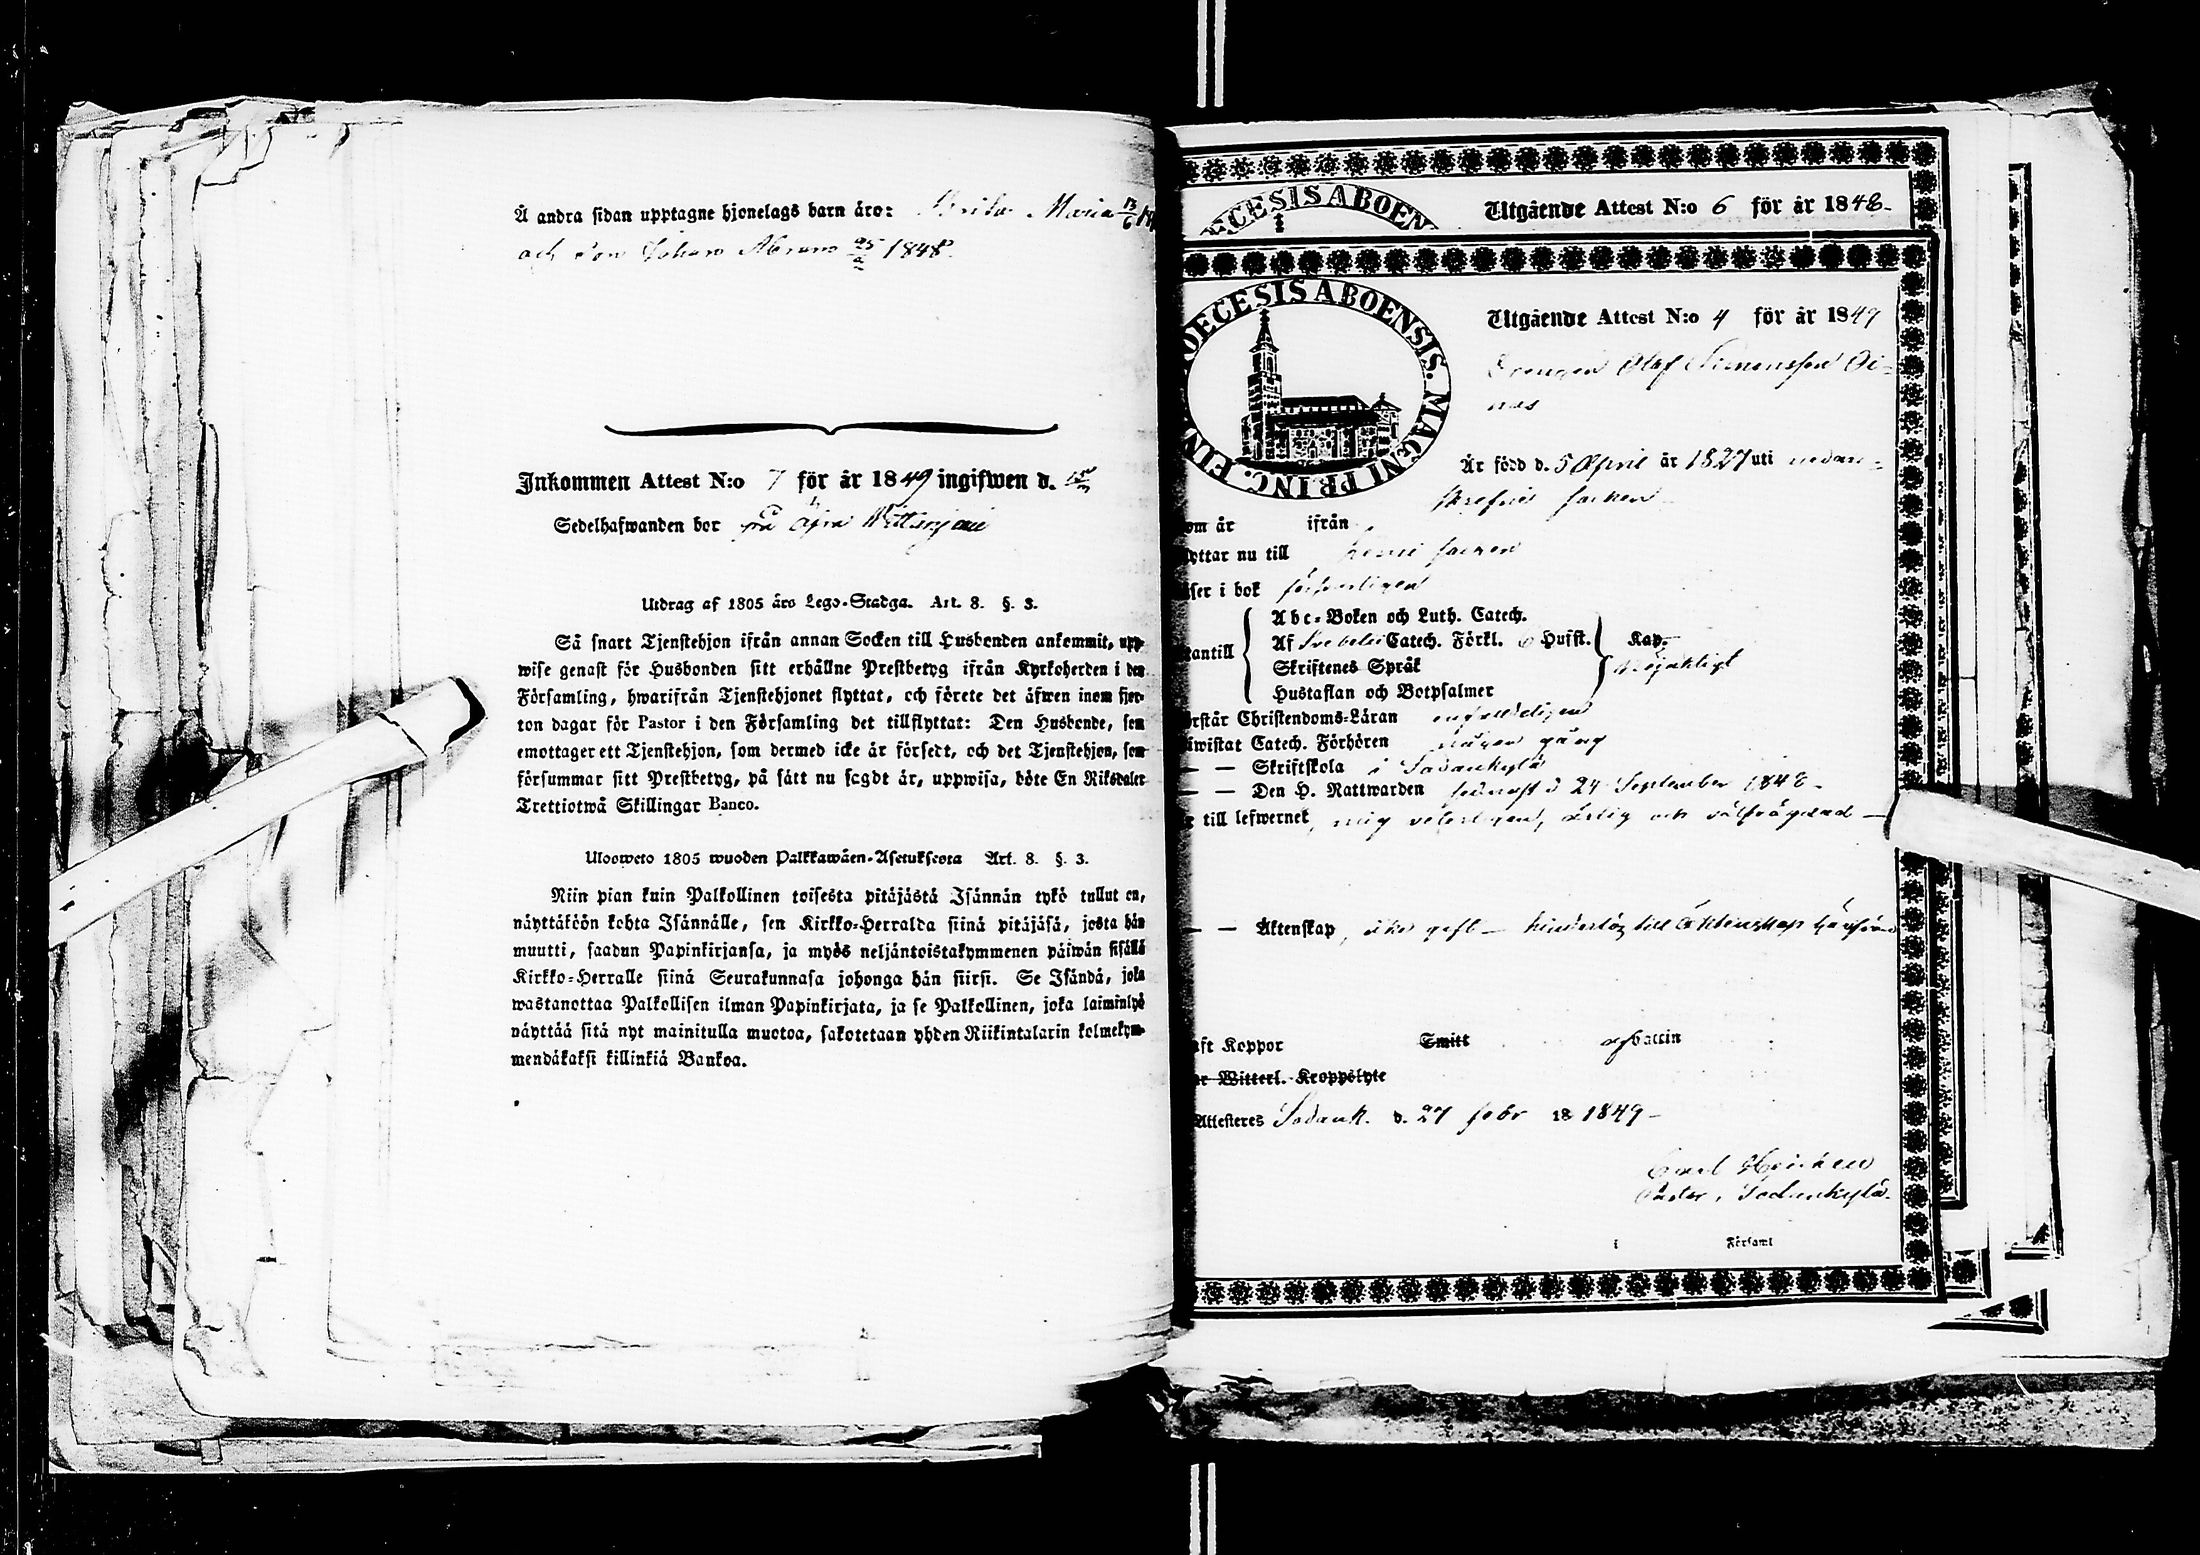 Å andra sidan upptagne hjonelags barn äro: Brita Maria 13/6
och son Johan Abram 25/2 1848.
Inkommen Attest N:o 7 för år 1849 ingifwen d.
Sedelhafwanden bor på Öfra Wittanjemi
Utdrag af 1805 års Lego-Stadga. Art. 8. §. 3.
Så snart Tjenstehjon ifrån annan Socken till Husbonden ankommit, upp-
wise genast för Husbonden sitt erhållne Prestbetyg ifrån Kyrkoherden i den
Församling, hwarifrån Tjenstehjonet flyttat, och förete det äfwen inom fjor-
ton dagar för Pastor i den Församling det tillflyttat: Den Husbonde, som
emottager ett Tjenstehjon, som dermed icke är försedt, och det Tjenstehjon, som
försummar sitt Prestbetyg, på sätt nu sagdt är, uppwisa, böte En Riksdaler
Trettiotwå Skillingar Banco.
Ulosweto 1805 wuoden Palkkawäen-Asetuksesta Art. 8. §. 3.
Niin pian kuin Palkollinen toisesta pitäjästä Isännän tykö tullut on,
näyttäköön kohta Isännälle, sen Kirkko-Herralda siinä pitäjäsä, josta hän
muutti, saadun Papinkirjansa, ja myös neljäntoistakymmenen päiwän sisällä
Kirkko-Herralle siinä Seurakunnasa johonga hän siirsi. Se Isändä, joka
wastanottaa Palkollisen ilman Papinkirjata, ja se Palkollinen, joka laiminlyö
näyttää sitä nyt mainitulla muotoa, sakotetaan yhden Riikintalarin kolmekym-
mendäkaksi killinkiä Bankoa.
OECESIS ABOEN
Utgående Attest N:o 6 för år 1848-
DIOECESIS ABOENSIS. MAGNI PRINC. FIN
Utgående Attest N:o 4 för år 1849
Drengen Olof Simonsson Oi-
nas
Är född d. 5 April år 1827 uti nedan-
skrefne socken
om år ifrån
yttar nu till Kemi socken
äser i bok försvarligen
Abc-Boken och Luth. Catech.
Af Svebelii Catech. Förkl. 6 Hufst. Kap.
tantill
Skriftenes Språk Nöjaktligt
Hustaflan och Botpsalmer
örstår Christendoms-Läran enfaldeligen
iwistat Catech. Förhören någon gång
— — Skriftskola i Sodankylä
— — Den H. Nattwarden sednast d 24 September 1848-
r till lefwernet, mig veterligen, ärlig och välfrägdad —
— — Äktenskap, icke gift — hinderlös till Äktenskap härifrån
aft Koppor Smitt af Vaccin
ar Witterl. Kroppslyte
Attesteres Sodank. d. 27 febr 18 1849-
Carl Heickell
Pastor i Sodankylä.
i Församl